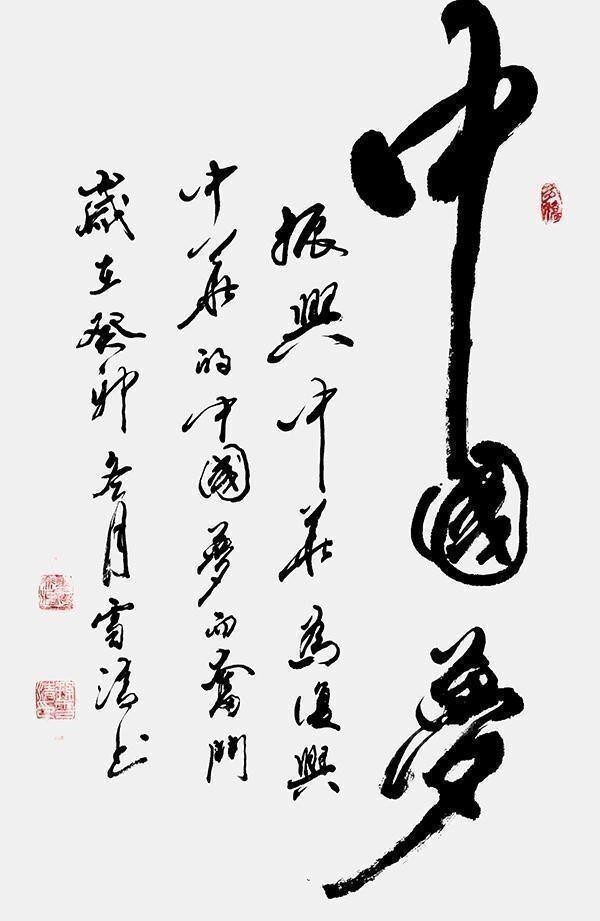 中國夢
振興中華為復興
中華的中國夢而奮鬥
歲在癸卯冬月雪清书